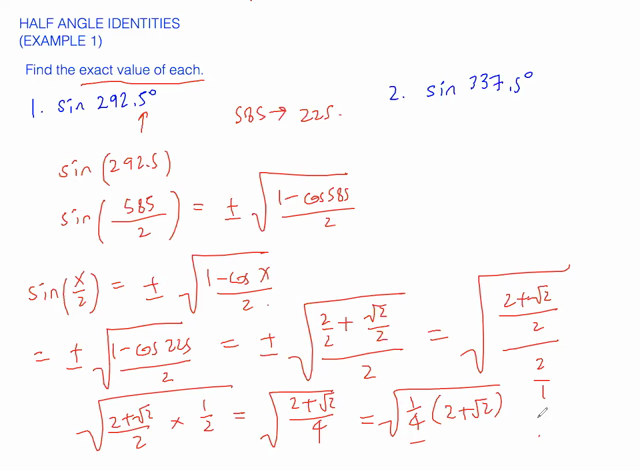 HALF ANGLE IDENTITIES
(EXAMPLE 1)
Find the exact value of each.
1. sin 292.5°
2. sin 337.5°
585 → 225.
sin(292.5)
sin(585/2) = ± √((1-cos585)/2)
sin(x/2) = ± √((1-cos x)/2).
= ± √((1-cos 225)/2) = ± √((2/2 + √2/2)/2) = √(((2+√2)/2)/(2/1))
√((2+√2)/2 × 1/2) = √((2+√2)/4) = √(1/4 (2+√2))